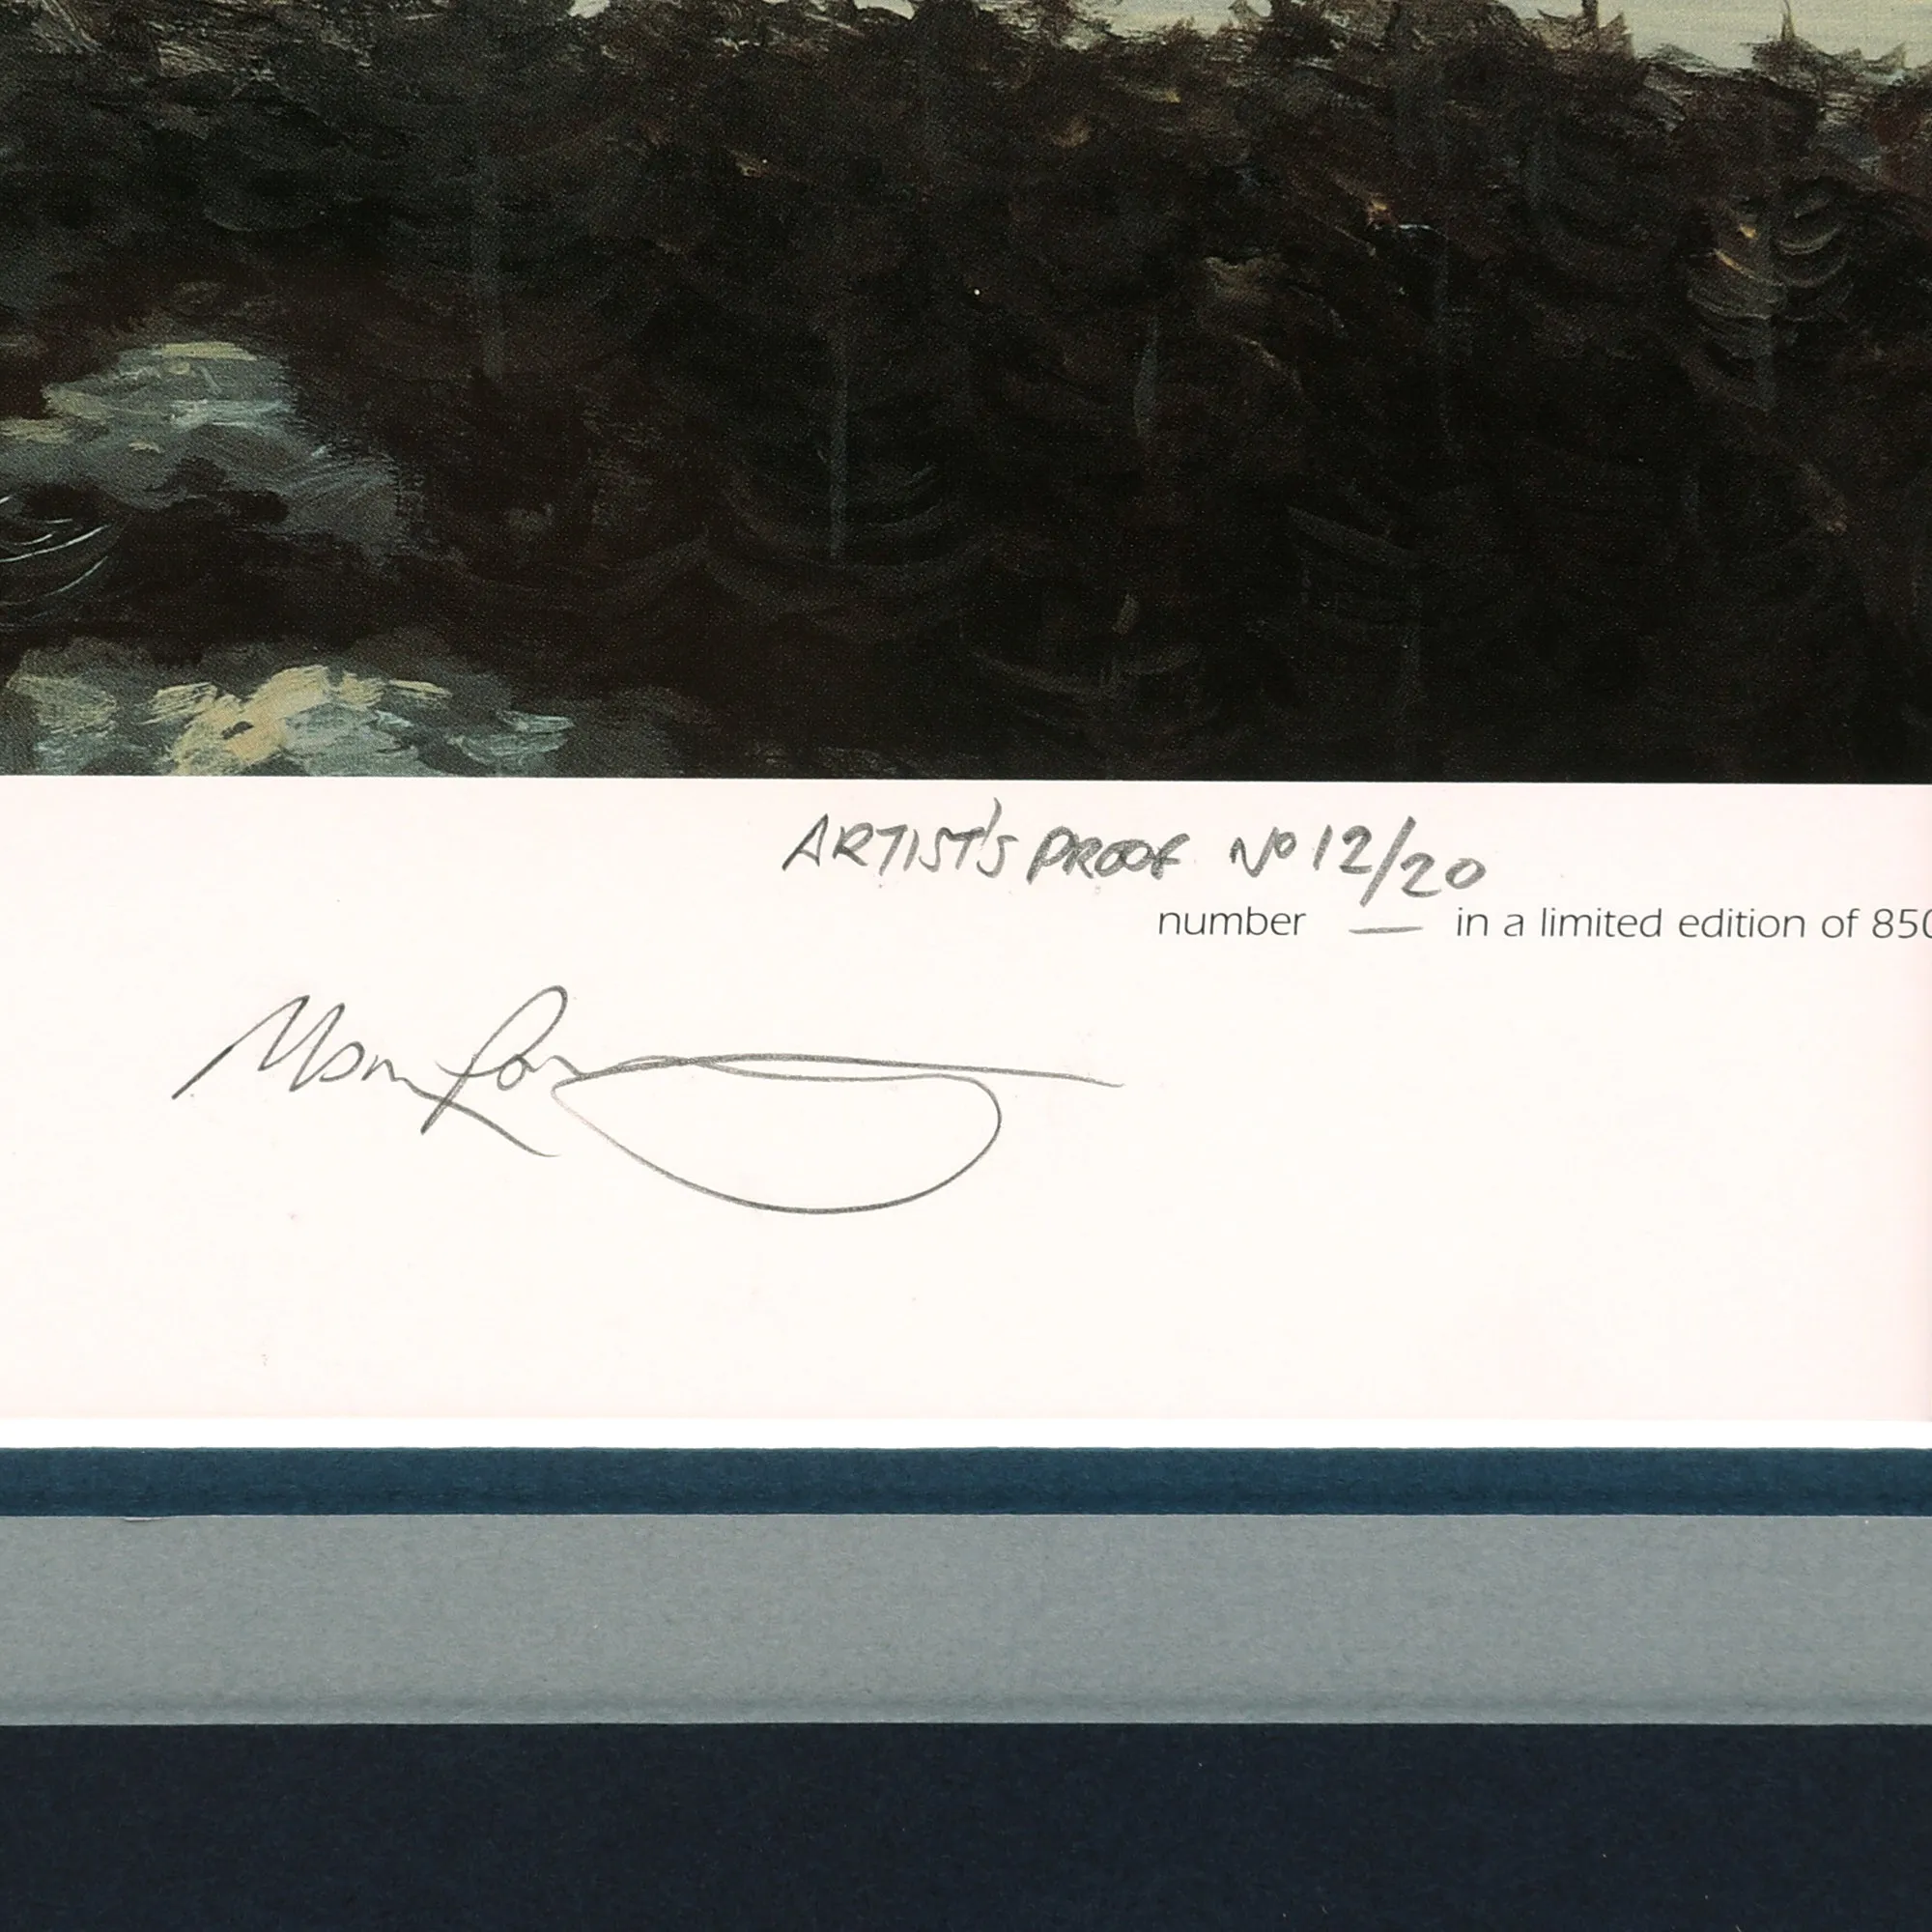 ARTIST'S PROOF No 12/20
number — in a limited edition of 850